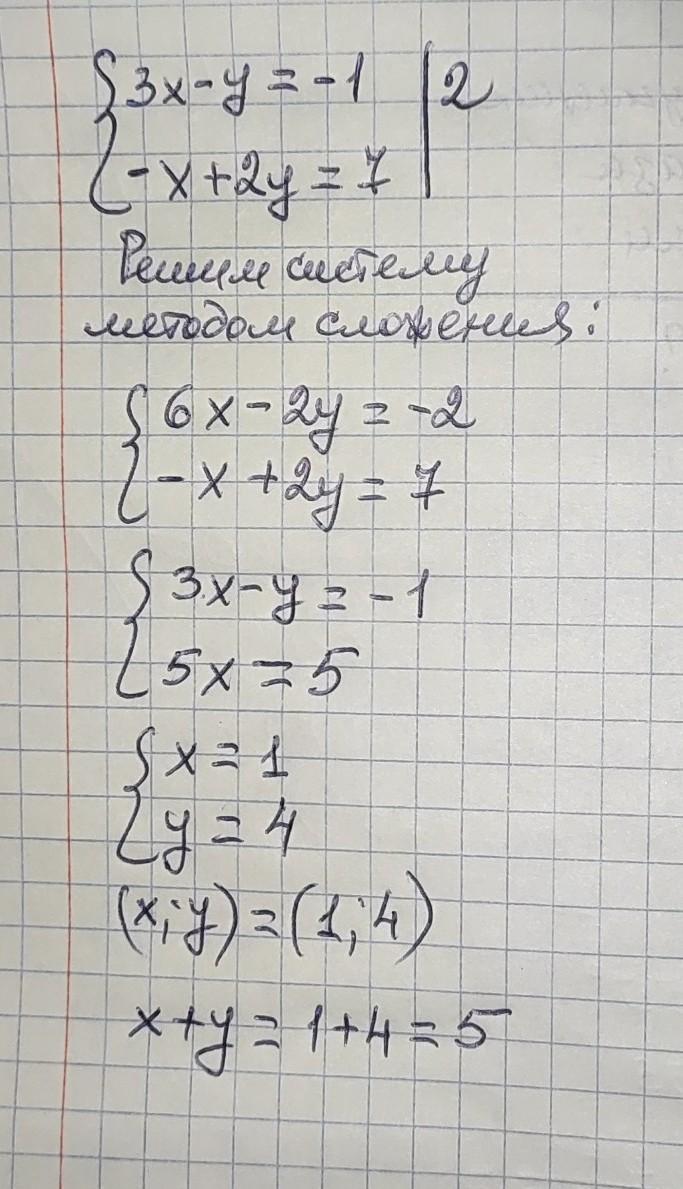 3x-y=-1 | 2
-x+2y=7
Решим систему
методом сложения:
6x-2y=-2
-x+2y=7
3x-y=-1
5x=5
x=1
y=4
(x;y)=(1;4)
x+y=1+4=5